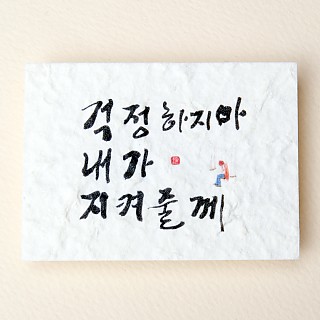 걱정하지마
내가
지켜줄께